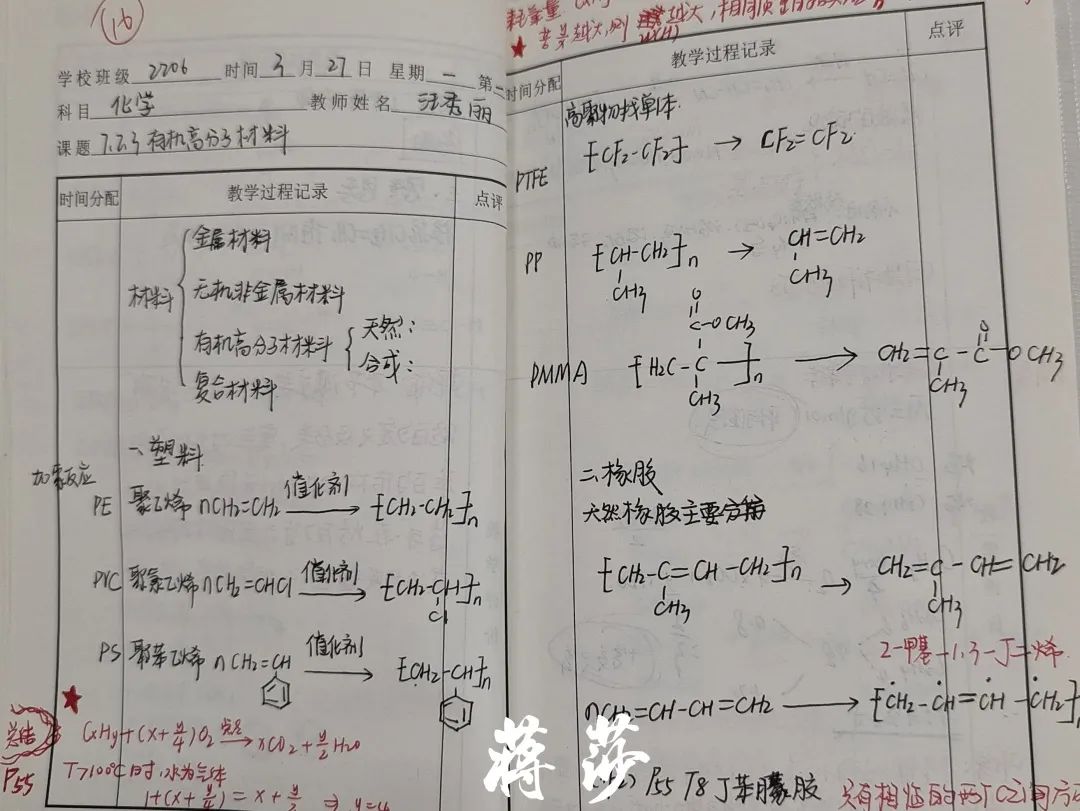 (16)
学校班级 2206 时间 3 月 27 日 星期 一 第二
科目 化学 教师姓名 汪秀丽
课题 7.2.3 有机高分子材料
时间分配 教学过程记录 点评
材料
金属材料
无机非金属材料
有机高分子材料
天然:
合成:
复合材料
一、塑料
加聚反应
PE 聚乙烯 nCH2=CH2 催化剂 → [CH2-CH2]n
PVC 聚氯乙烯 nCH2=CHCl 催化剂 → [CH2-CH]n
Cl
PS 聚苯乙烯 nCH2=CH 催化剂 → [CH2-CH]n
★
总结
P55
CxHy+(x+y/4)O2 点燃 → xCO2+y/2H2O
T>100℃时,水为气体
1+(x+y/4)=x+y/2 ⇒ y=4
★
时间分配 教学过程记录 点评
高聚物找单体
PTFE [CF2-CF2] → CF2=CF2
PP [CH-CH2]n → CH=CH2
CH3 CH3
O
C-OCH3
PMMA [H2C-C]n → CH2=C-C-OCH3
CH3 CH3 O
二、橡胶
天然橡胶主要分
[CH2-C=CH-CH2]n → CH2=C-CH=CH2
CH3 CH3
2-甲基-1,3-丁二烯
nCH2=CH-CH=CH2 → [CH2-CH=CH-CH2]n
P55 T8 丁苯橡胶
只有相临的两个C之间
蒋莎